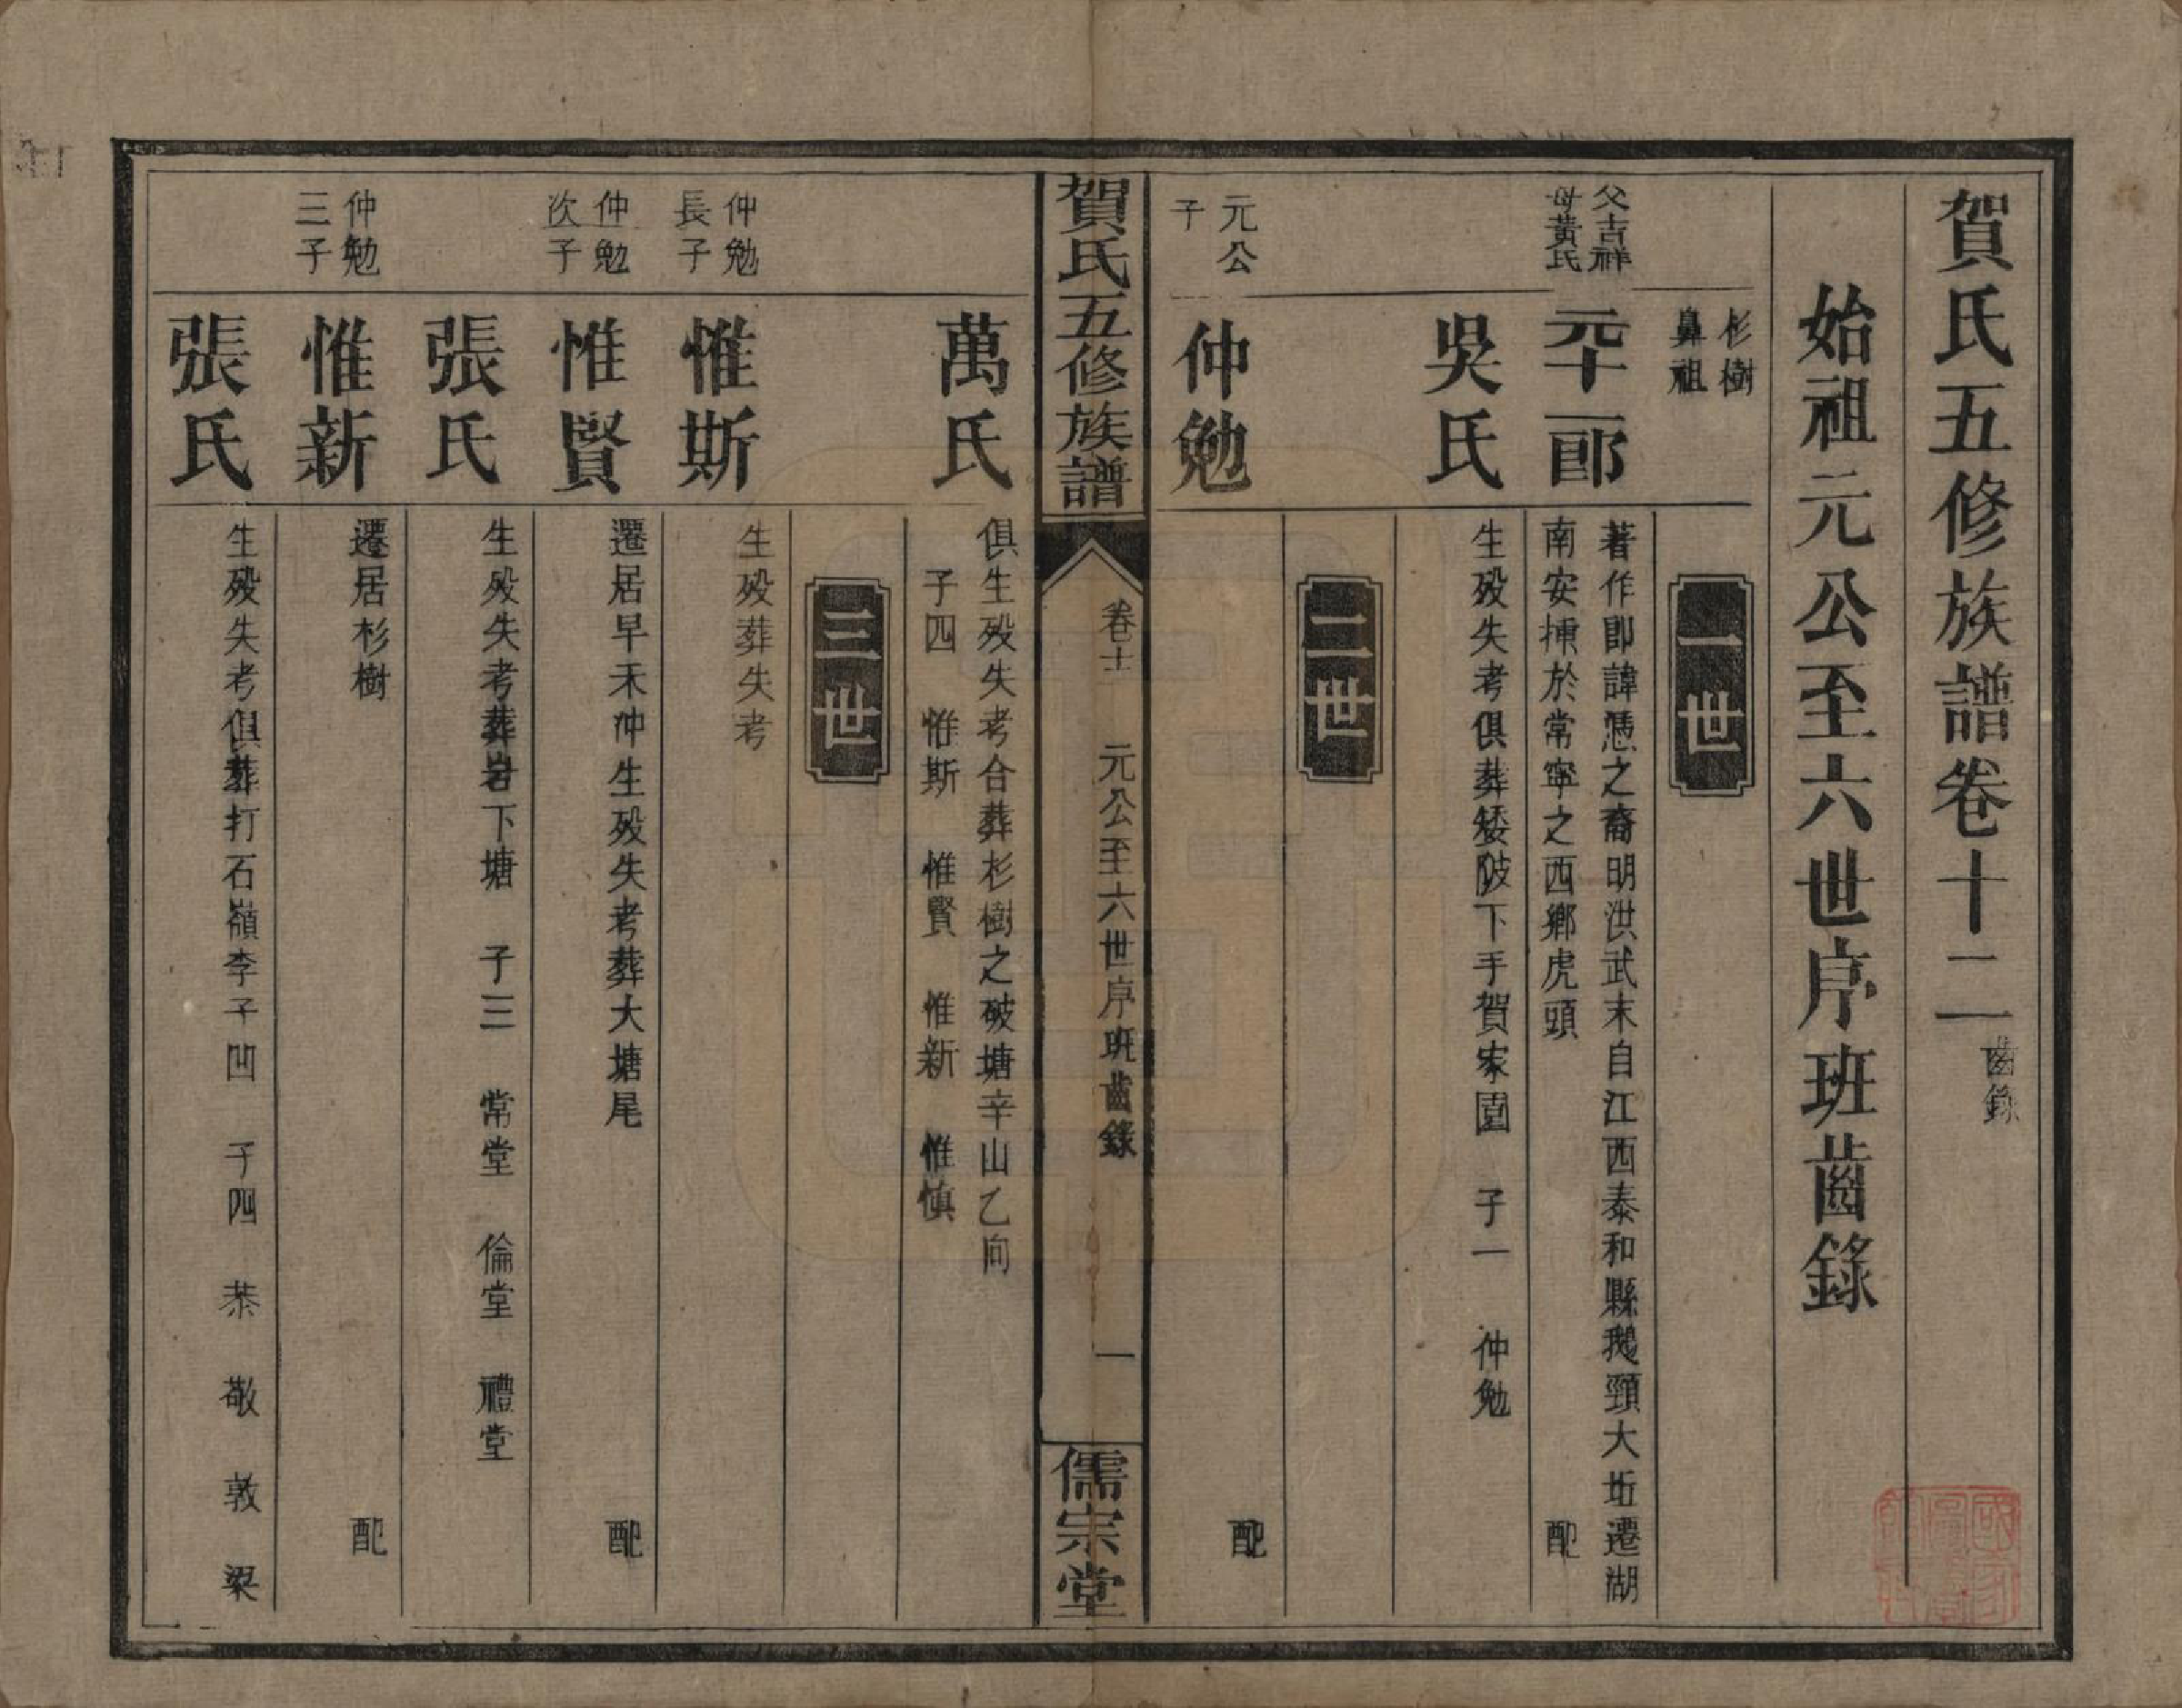 賀氏五修族譜卷十二 齒錄
始祖元公至六世序班齒錄
一世
杉樹鼻祖
父吉祥母黃氏
元十一郎
著作郎諱憑之裔明洪武末自江西泰和縣鵝頸大坵遷湖
南安揷於常寧之西鄉虎頭 配
吳氏
生殁失考俱葬矮陂下手賀家園 子一 仲勉
二世
元公子
仲勉
配
賀氏五修族譜 卷十二 元公至六世序班齒錄 一 儒宗堂
萬氏
俱生殁失考合葬杉樹之破塘辛山乙向
子四 惟斯 惟賢 惟新 惟慎
三世
仲勉長子
惟斯
生殁葬失考
仲勉次子
惟賢
遷居早禾冲生殁失考葬大塘尾 配
張氏
生殁失考葬岩下塘 子三 常堂 倫堂 禮堂
仲勉三子
惟新
遷居杉樹 配
張氏
生殁失考俱葬打石嶺李子凹 子四 恭 敬 敦 梁